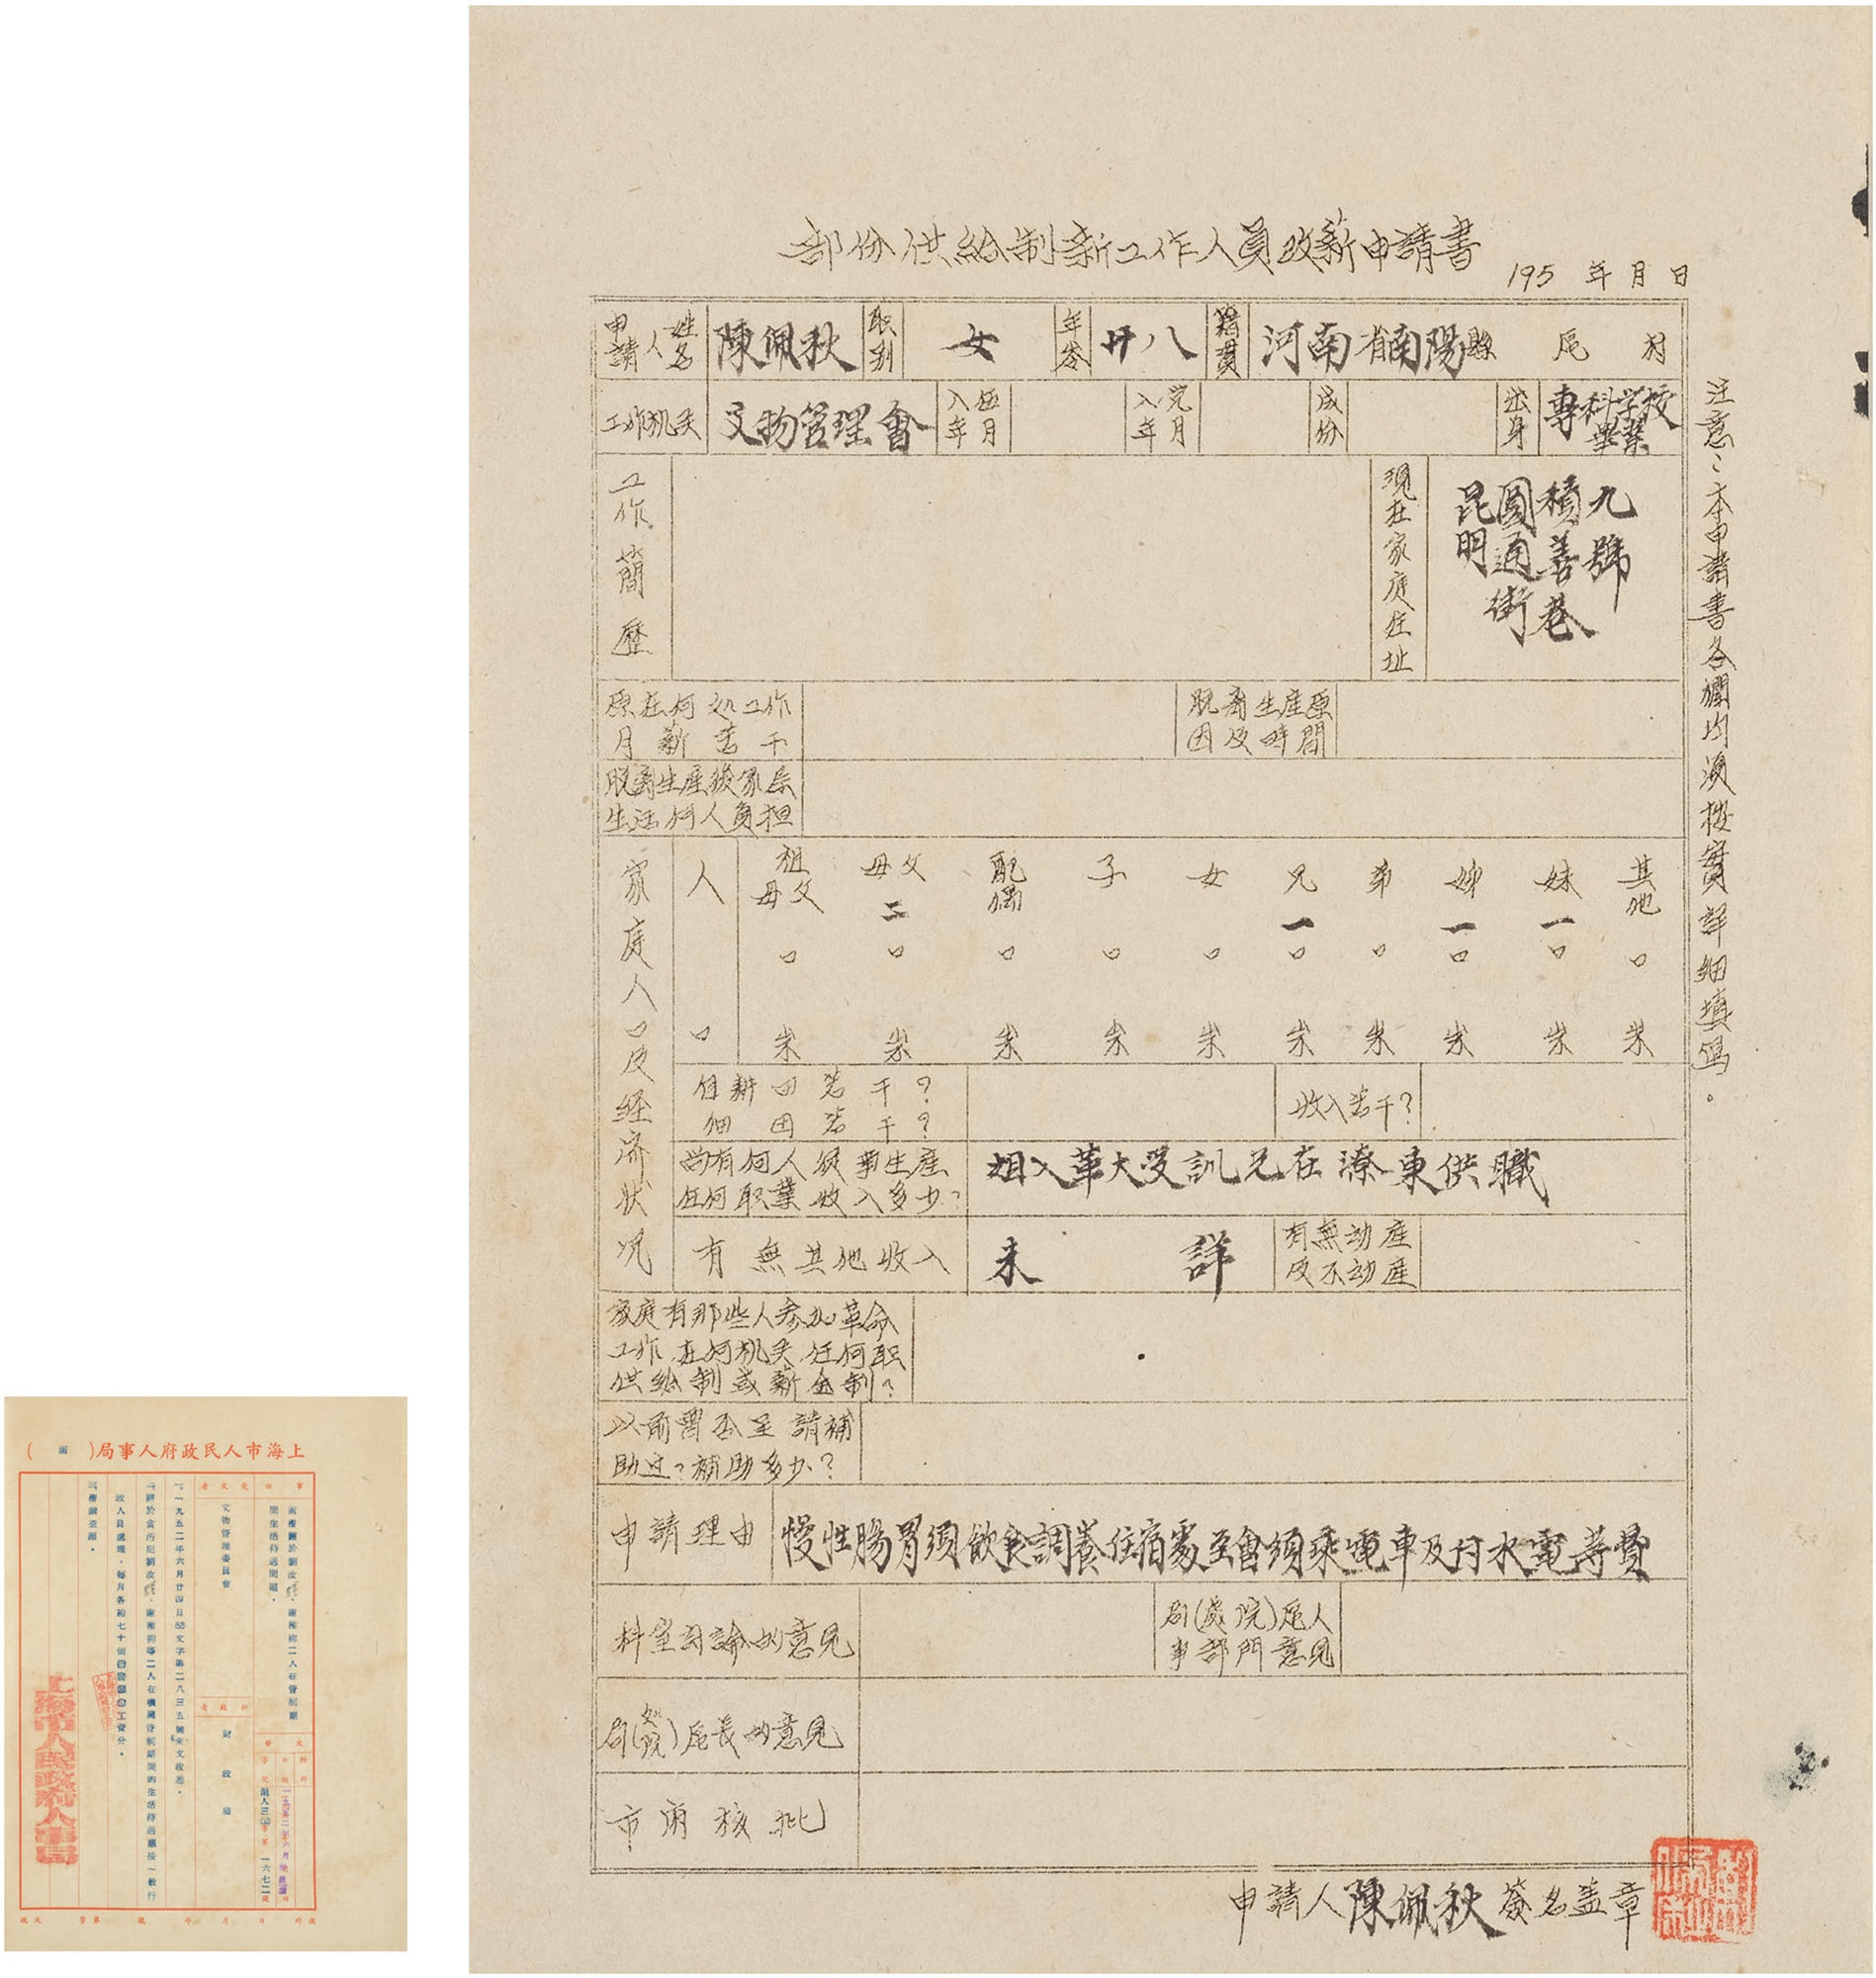 部份供給制新工作人員改薪申請書
195 年 月 日
申請人 姓名 陳佩秋 职别 女 年岺 廿八 籍貫 河南省南陽縣 区 村
工作机关 文物管理會 入伍年月 入党年月 成份 出身 專科学校畢業
工作簡歷
現在家庭住址
昆明
圓通街
積善巷
九號
原在何处工作
月薪若干
脱离生産原
因及時間
脱离生産後家屬
生活何人負担
家庭人口及経済状况
人口
祖父母 口 米
父母 二 口 米
配偶 口 米
子 口 米
女 口 米
兄 一 口 米
弟 口 米
姊 一 口 米
妹 一 口 米
其他 口 米
自耕田若干?
佃田若干?
收入若干?
尚有何人從事生産
任何职業收入多少?
姐入革大受訓兄在潦東供職
有無其他收入
未詳
有無动産
及不动産
家庭有那些人参加革命
工作.在何机关.任何职
供給制或薪金制?
以前曾否呈請補
助过?補助多少?
申請理由
慢性腸胃須飲食調養住宿處至會須乘電車及付水電等費
科室討論的意見
局(處院)区人
事部門意見
局(處院)区長的意見
市府核批
申請人陳佩秋簽名盖章
注意:本申請書各欄均須按實詳細填寫。
上海市人民政府人事局(函)
事由
受文者
文物管理委員會
財政局
函復關於劉汝、謝稚柳二人在管制期
間生活待遇問題。
一、一九五二年六月廿四日文字第二八三五號來文收悉。
二、關於貪汚犯劉汝、謝稚柳等二人在機關管制期間的生活待遇應按一般行
政人員處理,每月各給七十個工資分。
三、復請查照。
滬人三字第一六七二號
上海市人民政府人事局